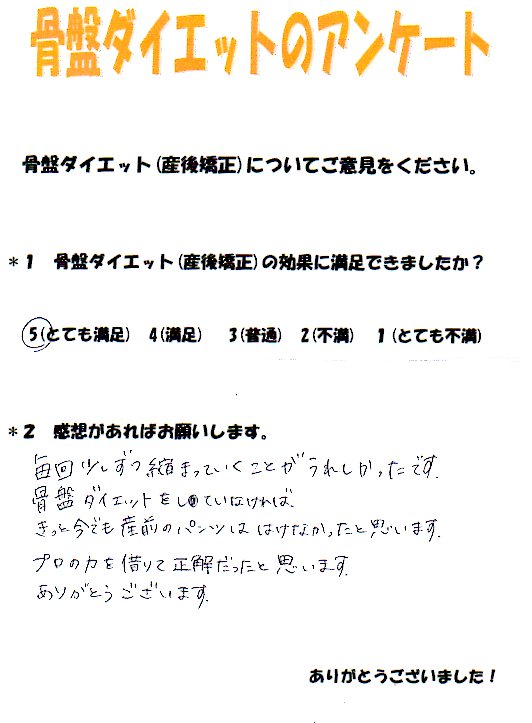 骨盤ダイエットのアンケート
骨盤ダイエット(産後矯正)についてご意見をください。
*1 骨盤ダイエット(産後矯正)の効果に満足できましたか?
5(とても満足) 4(満足) 3(普通) 2(不満) 1(とても不満)
*2 感想があればお願いします。
毎回少しずつ縮まっていくことがうれしかったです。
骨盤ダイエットをしていなければ、
きっと今でも産前のパンツははけなかったと思います。
プロの力を借りて正解だったと思います。
ありがとうございます。
ありがとうございました!